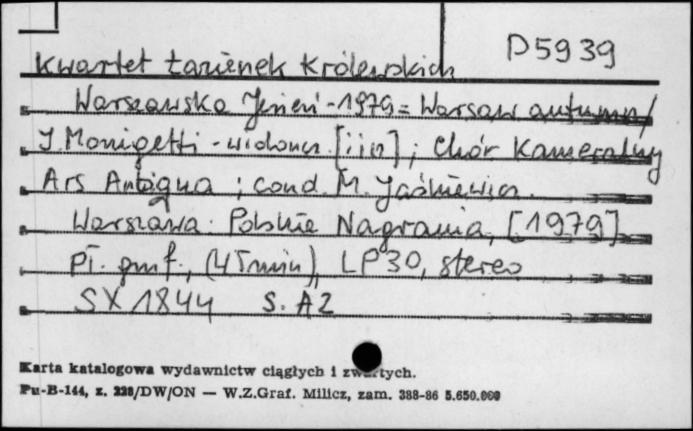 D5939
Kwartet Łazienek Królewskich
Warszawska Jesień - 1979 = Warsaw autumn /
I. Monigetti - wioloncz. [i in]; Chór Kameralny
Ars Antiqua ; cond. M. Jaśkiewicz.
Warszawa: Polskie Nagrania, [1979]
Pł. gmf., (45 min), LP30, stereo
SX 1844 S. A2
Karta katalogowa wydawnictw ciągłych i zwartych.
Pu-B-144, z. 228/DW/ON — W.Z.Graf. Milicz, zam. 388-86 5.650.000